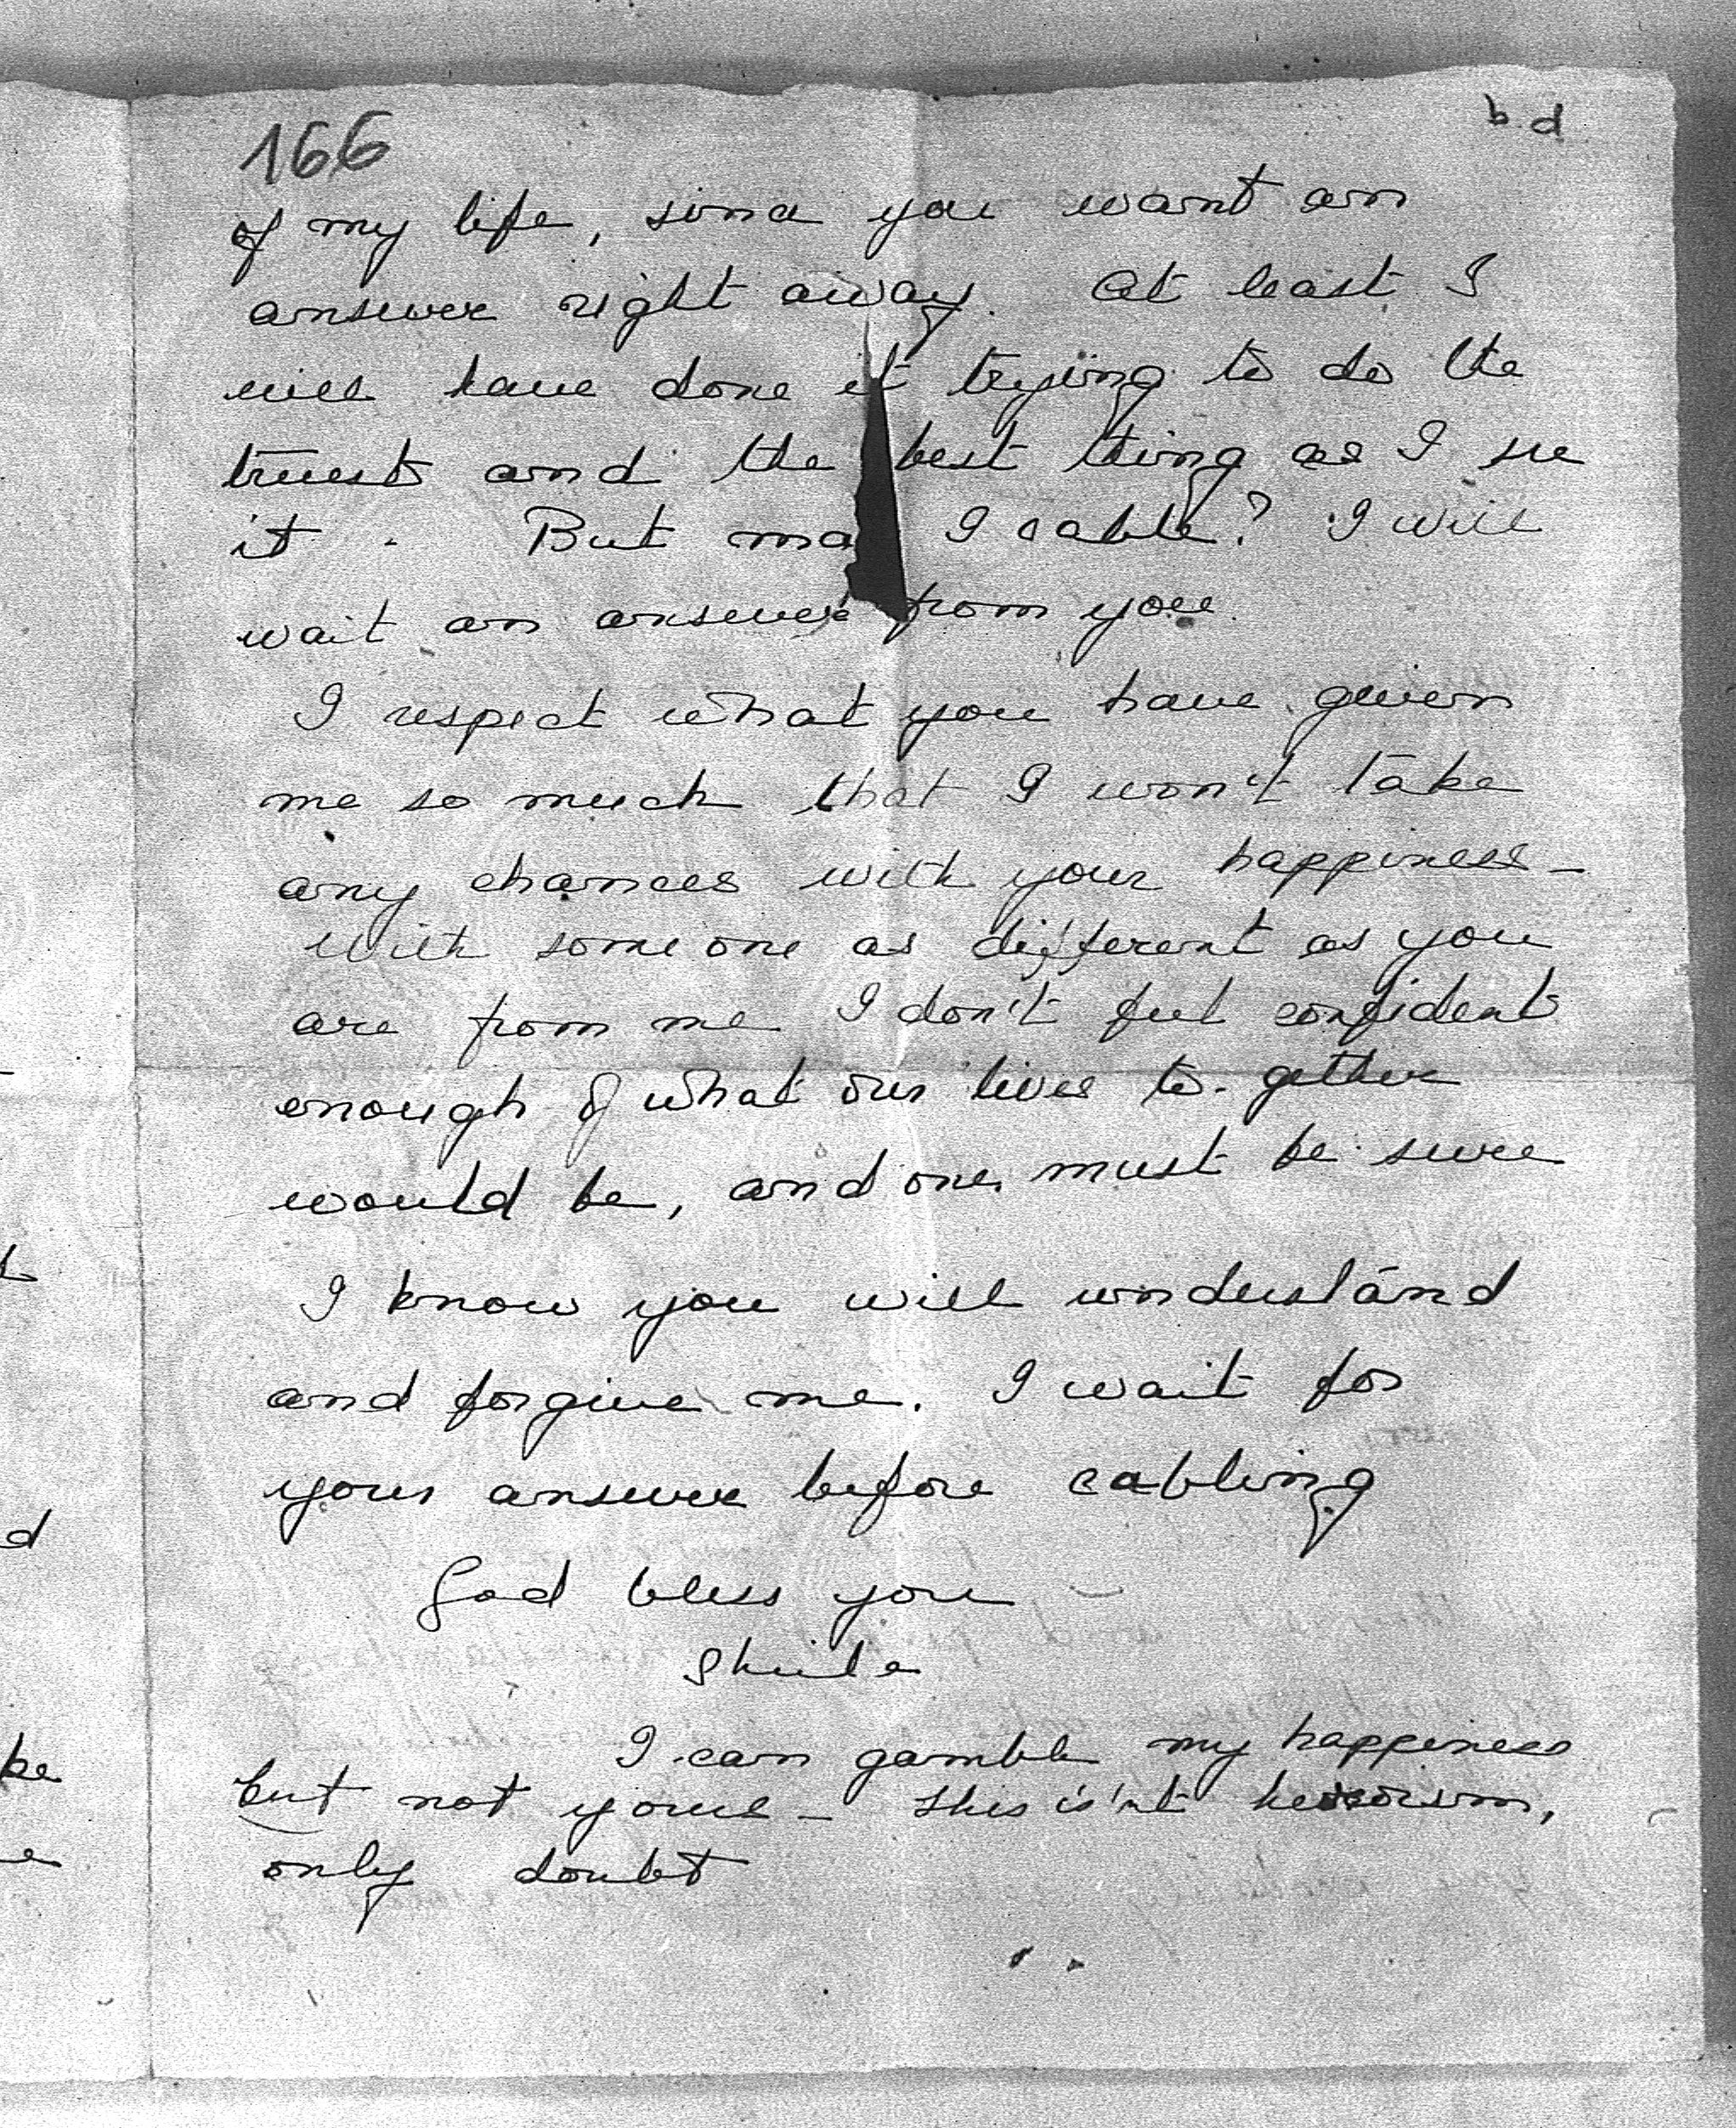 166
b d
of my life, since you want an
answer right away. At least I
will have done it trying to do the
truest and the best thing as I see
it. But ma I cable? I will
wait an answer from you
I respect what you have given
me so much that I won't take
any chances with your happiness -
with some one as different as you
are from me I don't feel confident
enough of what our lives to-gether
would be, and one must be sure
I know you will understand
and forgive me. I wait for
your answer before cabling
God bless you -
Sheila
I can gamble my happiness
but not yours - this is'nt heroism,
only doubt
d
be